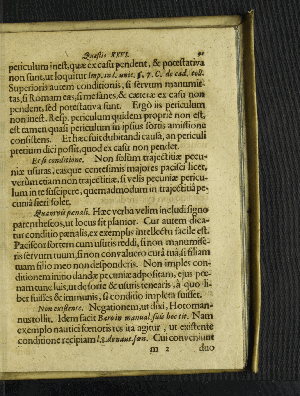 Quæstio XXVI. 91
periculum inest, quæ ex casu pendent, & potestativa
non sunt, ut loquitur Imp. in l. unic. §. 7. C. de cad. toll.
Superioris autem conditionis, si servum manumit-
tas, si Romam eas, si me sanes, & cæteræ ex casu non
pendent, sed potestativa sunt. Ergo iis periculum
non inest. Resp. periculum quidem propriè non est,
est tamen quasi periculum in ipsius sortis amissione
consistens. Et hæc sui dubitandi causa, an periculi
pretium dici possit, quod ex casu non pendet.
Et si conditione. Non solùm trajectitiæ pecu-
niæ usuras, easque centesimas majores pacisci licet,
verùm etiam non trajectitiæ, si velis pecuniæ pericu-
lum in te suscipere, quemadmodum in trajectitia pe-
cunia fieri solet.
Quamvis pœnali. Hæc verba velim includi signo
parentheseos, ut locus sit planior. Cur autem dica-
tur conditio pœnalis, ex exemplis intellectu facile est.
Paciscor sortem cum usuris reddi, si non manumise-
ris servum tuum, si non convaluero cura tua, si filiam
tuam filio meo non desponderis. Non implet con-
ditionem: reus dandæ pecuniæ ad positam, ejus pœ-
nam tunc luis, ut de sorte & usuris tenearis, à quo li-
ber fuisses & immunis, si conditio impleta fuisset.
Non existente. Negationem, ut dixi, Hotoman-
nus tollit. Idem facit Baro in manual. suis hoc tit. Nam
exemplo nautici fœnotis res ita agitur, ut existente
conditione recipiam l. 3. de naut. fœn. Cui conveniunt
m 2 duo